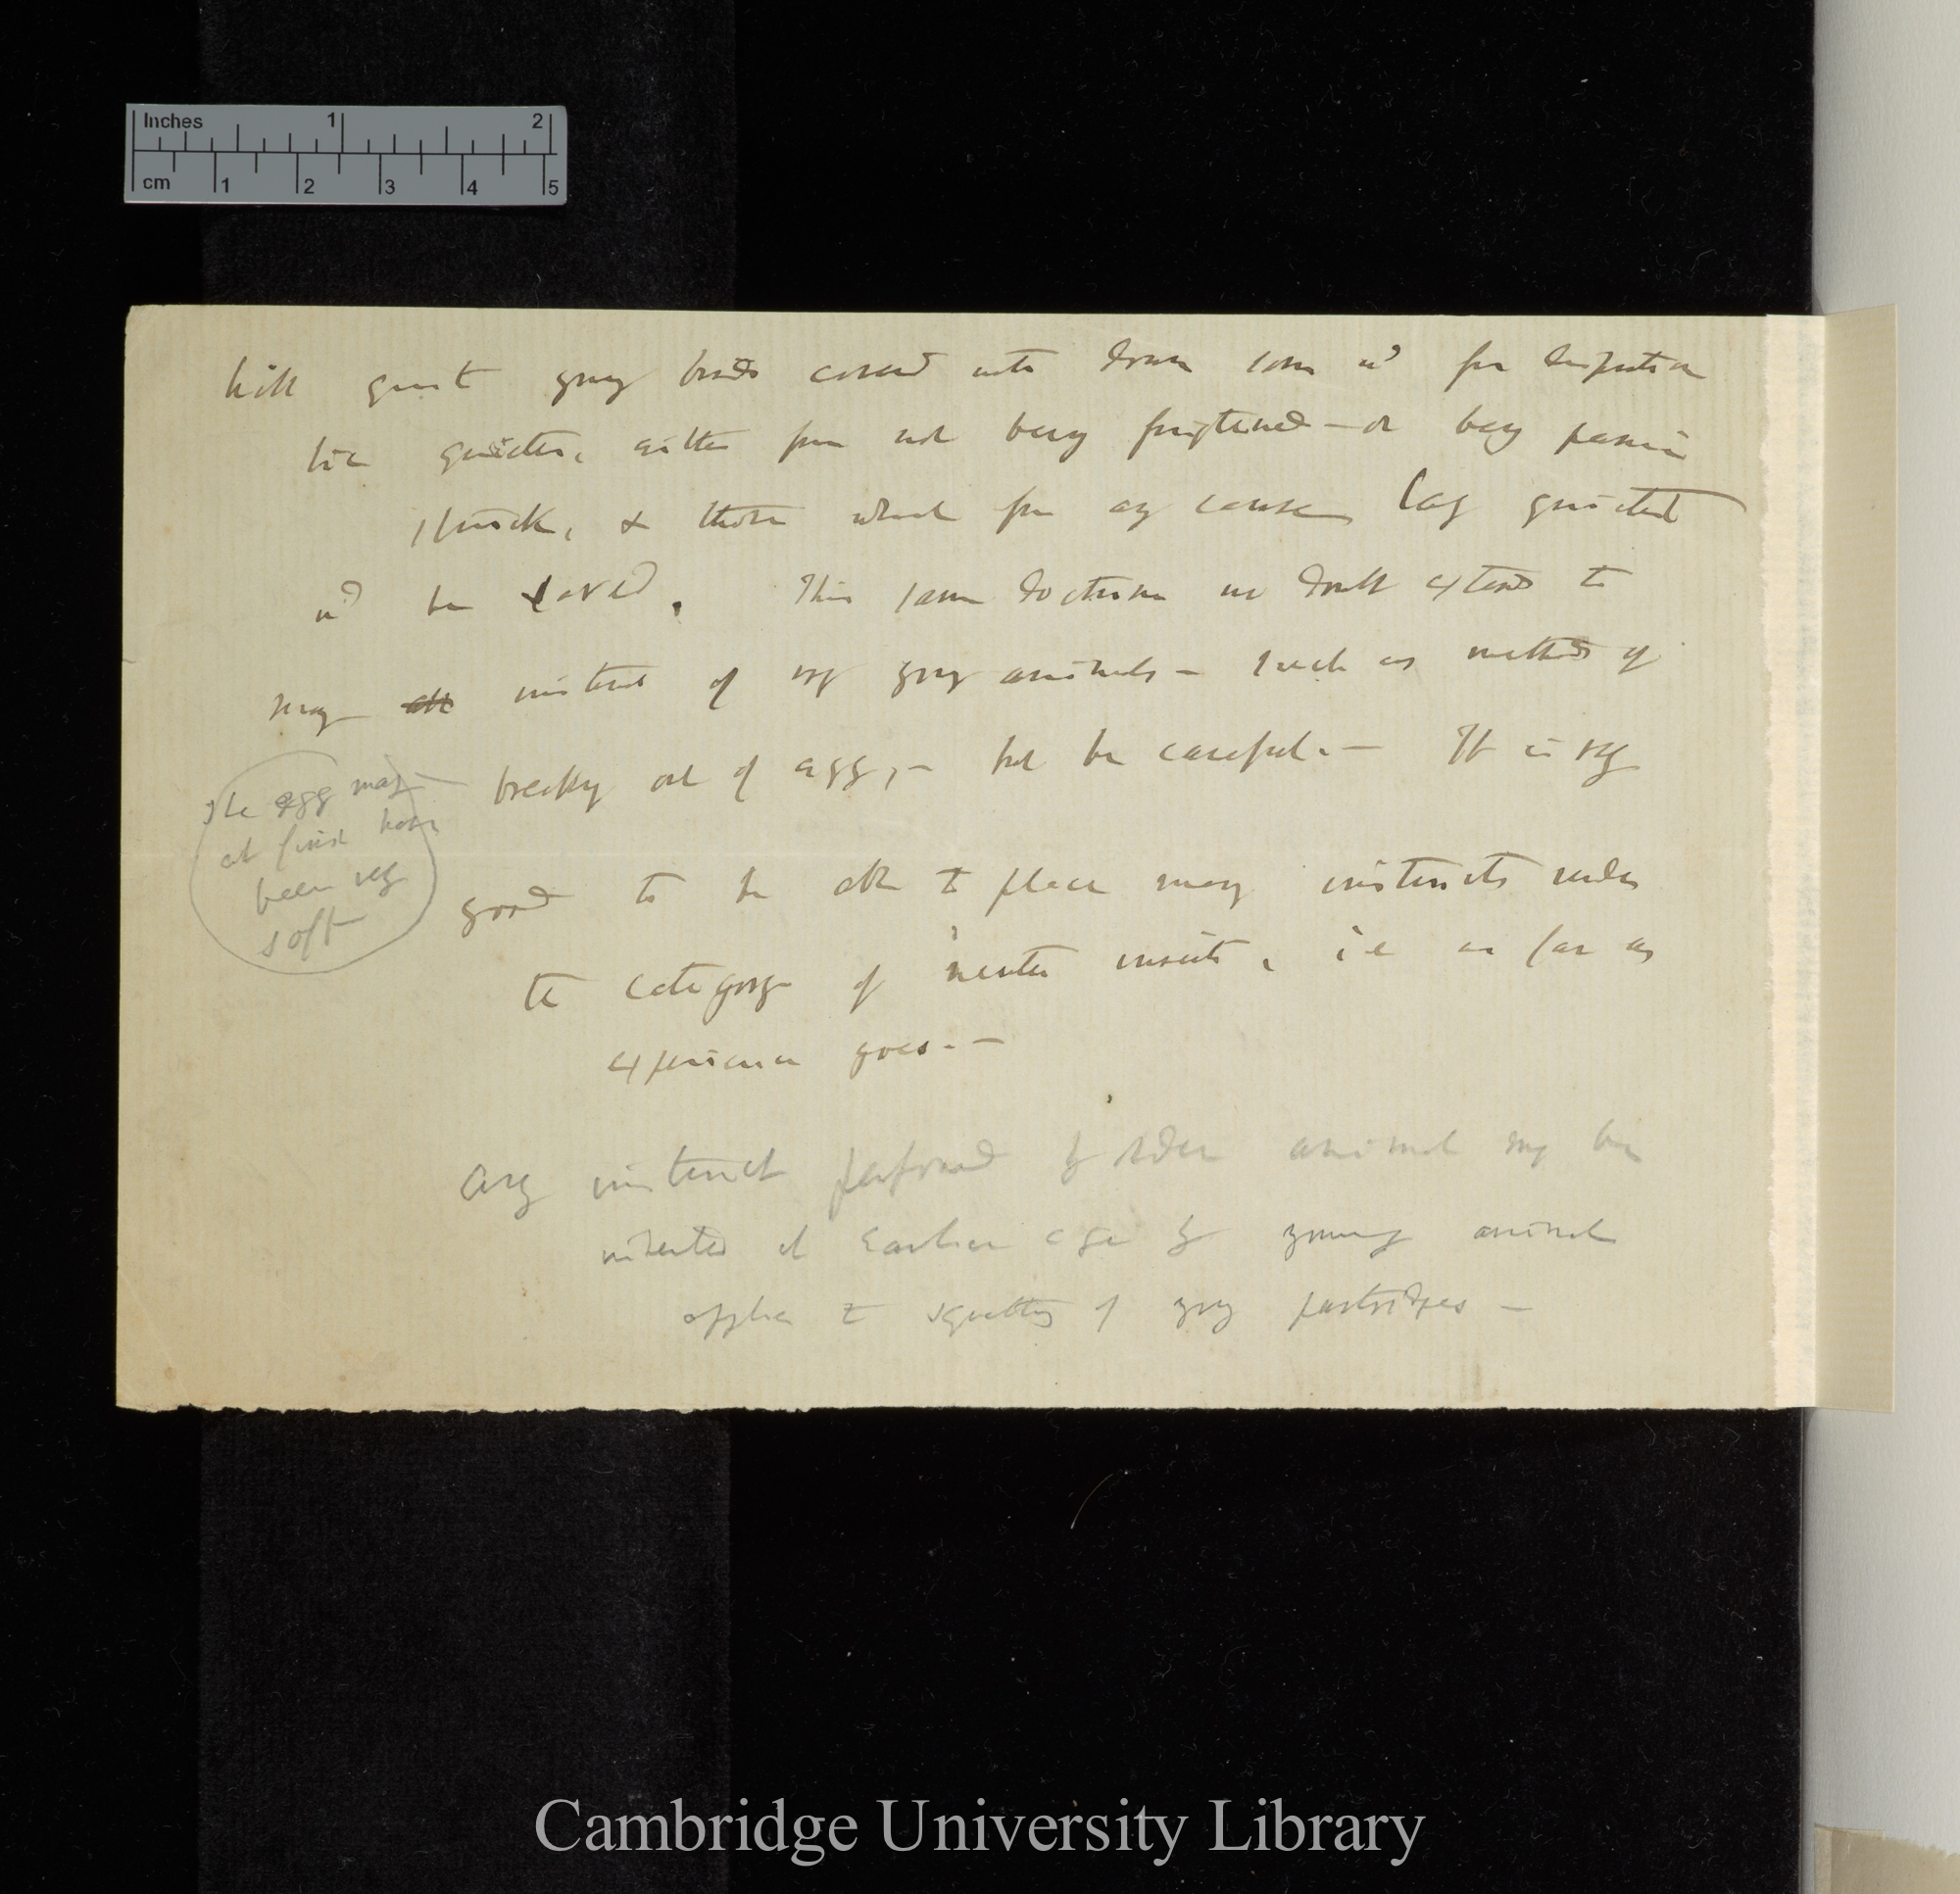 Inches 1 2
cm 1 2 3 4 5
kill young birds covered with down some wd for
lie quieter, either from not being frightened — or being panic
struck, & those which from any cause lay quietest
wd be saved. This same doctrine no doubt extends to
many instincts of very young animals — such as method of
breaking out of egg, — but be careful. — It is very
The egg may
at first have
been very
soft
good to be able to place many instincts under
the category of neuter insects, i.e. as far as
experience goes. —
Any instinct performed by older animal may be
inherited at earlier age by young animal
applies to squatting of young partridges —
Cambridge University Library